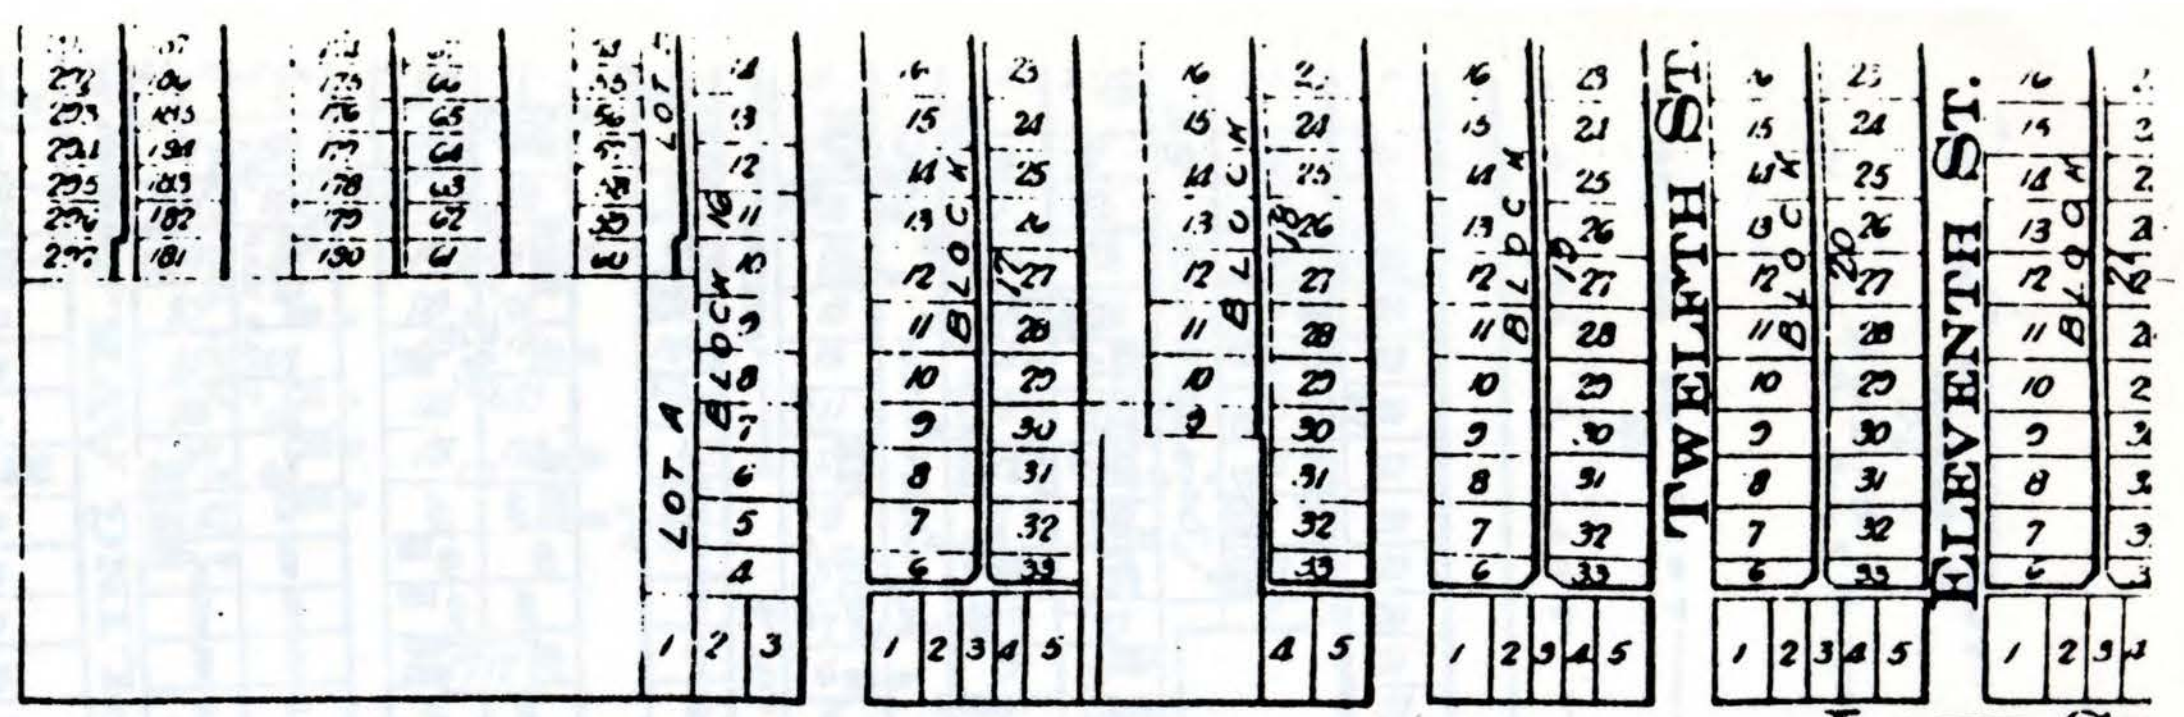 293 184
295 183
296 182
181
175 66
176 65
177 64
178 63
179 62
180 61
56
LOT
LOT A
BLOCK 16
14
13
12
11
10
9
8
7
6
5
4
1 2 3
BLOCK 17
16 23
15 24
14 25
13 26
12 27
11 28
10 29
9 30
8 31
7 32
6 33
1 2 3 4 5
BLOCK 18
16
15 24
14 25
13 26
12 27
11 28
10 29
9 30
31
32
33
4 5
BLOCK 19
16 23
15 24
14 25
13 26
12 27
11 28
10 29
9 30
8 31
7 32
6 33
1 2 3 4 5
TWELFTH ST.
BLOCK 20
16 23
15 24
14 25
13 26
12 27
11 28
10 29
9 30
8 31
7 32
6 33
1 2 3 4 5
ELEVENTH ST.
BLOCK 21
16
15
14
13
12
11
10
9
8
7
6
1 2 3 4